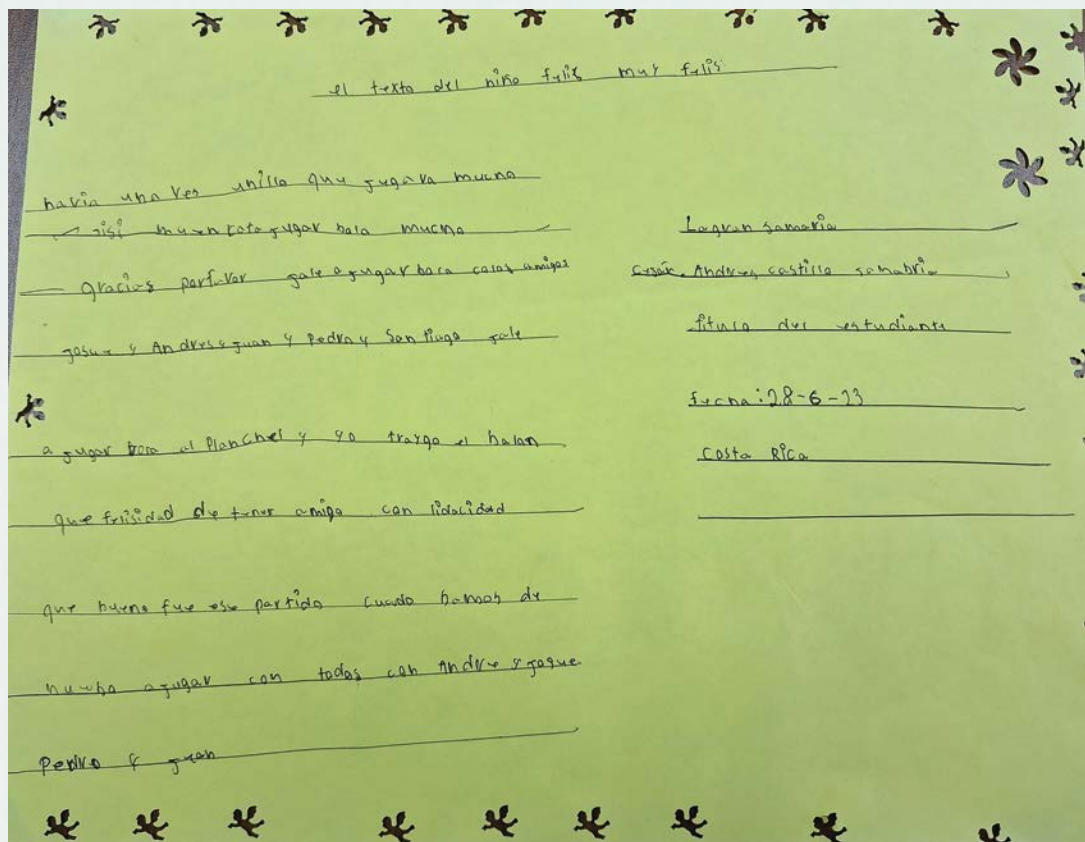 el texto del niño felis muy felis
havia una ves unillo que jugava mucho
jisi muen jugar bala mucho
gracias porfavor jale a jugar amigos
josue y Andres y juan y Pedro y Santiago jale
a jugar al Planchet y yo traygo el balan
que felisidad de tener amigo con
que bueno fue ese partido cuado bamos de
nuebo a jugar con todos con Andre y
Pedro y juan
Andres castillo sanabria
del estudiante
fecha: 28-6-23
Costa Rica